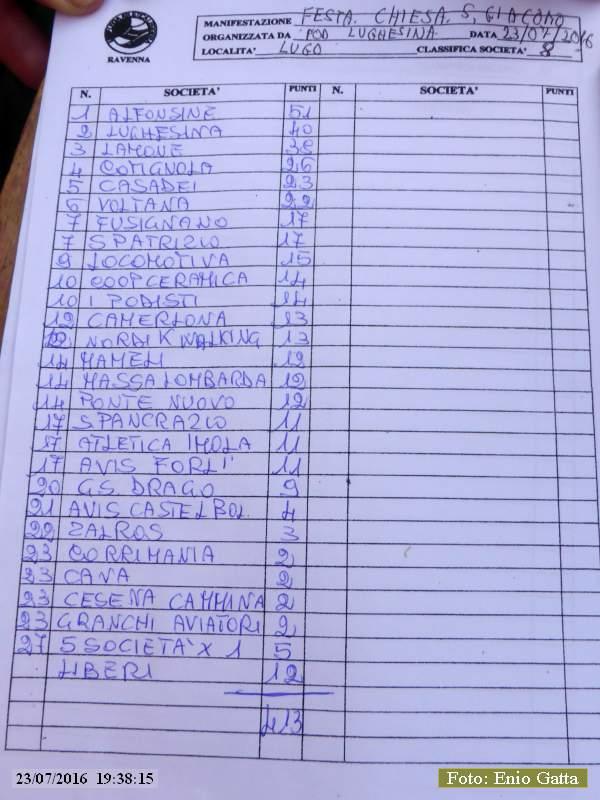 RAVENNA
MANIFESTAZIONE FESTA CHIESA S, GIACOMO
ORGANIZZATA DA POD LUGHESINA DATA 23/07/2016
LOCALITA' LUGO CLASSIFICA SOCIETA' 8
N. SOCIETA' PUNTI N. SOCIETA' PUNTI
1 ALFONSINE 51
2 LUGHESINA 40
3 LAMONE 38
4 COTIGNOLA 26
5 CASADEI 23
6 VOLTANA 22
7 FUSIGNANO 17
7 S PATRIZIO 17
9 LOCOMOTIVA 15
10 COOPCERAMICA 14
10 I PODISTI 14
12 CAMERLONA 13
12 NORDIK WALKING 13
14 MAMELI 12
14 MASSALOMBARDA 12
14 PONTE NUOVO 12
17 SPANCRAZIO 11
17 ATLETICA IMOLA 11
17 AVIS FORLI' 11
20 GS. DRAGO 9
21 AVIS CASTELBOL. 4
22 ZALROS 3
23 CORRIMANIA 2
23 CAVA 2
23 CESENA CAMMINA 2
23 GRANCHI AVIATORI 2
27 5 SOCIETA' X 1 5
LIBERI 12
413
23/07/2016 19:38:15
Foto: Enio Gatta